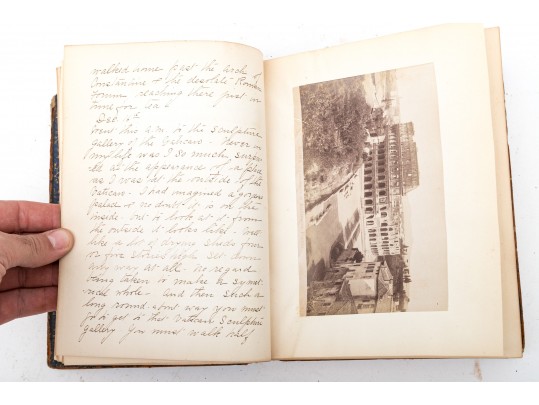 walked home past the Arch of
Constantine & the desolate Roman
Forum reaching there just in
time for tea!
Dec. 1st
Went this a.m. to the Sculpture
gallery of the Vatican. Never in
my life was I so much surpr-
at the appearance of a place
as I was at the outside of the
Vatican. I had imagined a gorgeous
palace & no doubt it is on the
inside. but to look at it from
the outside it looks like. Well
like a lot of drying sheds four
or five stories high set down
any way at all. no regard
being taken to make a symet-
rical whole. And then such a
long round about way you must
go to get to that Vatican Sculpture
gallery. You must walk half